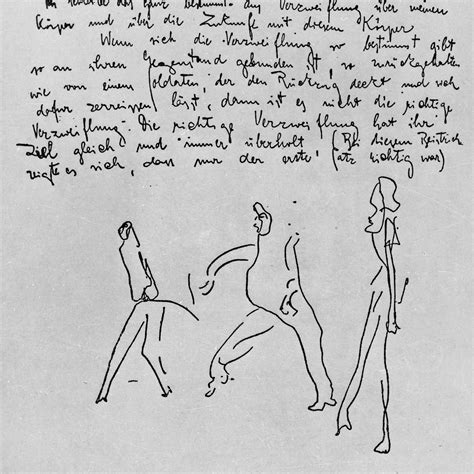 schreibe das ganz bestimmt aus Verzweiflung über meinen
Körper und über die Zukunft mit diesem Körper
Wenn sich die Verzweiflung so bestimmt gibt
so an ihren Gegenstand gebunden ist, so zurückgehalten
wie von einem Soldaten, der den Rückzug deckt und sich
dafür zerreissen lässt, dann ist es nicht die richtige
Verzweiflung. Die richtige Verzweiflung hat ihr
Ziel gleich und immer überholt, (Bei diesem Beistrich
zeigte es sich, dass nur der erste Satz richtig war)